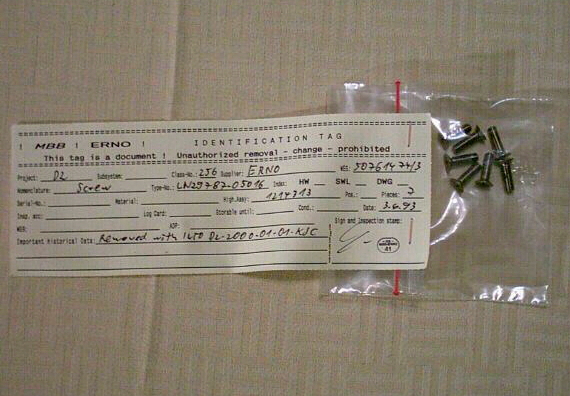 ! MBB ! ERNO ! IDENTIFICATION TAG
This tag is a document ! Unauthorized removal - change - prohibited
Project: D2 Subsystem: Class-No.: 256 Supplier: ERNO
Nomenclature: Screw Type-No.: LN29787-05016 Index: HW SWL DWG
Serial-No.: Material: High.Assy: 1214713 Pos.: Pieces: 7
Insp. acc: Log Card: Storable until: Cond.: Date: 3.6.93
WEB: ASP: Sign and Inspection stamp:
Important Historical Data: Removed with 1450 D2-2000-01-01-KSC
41